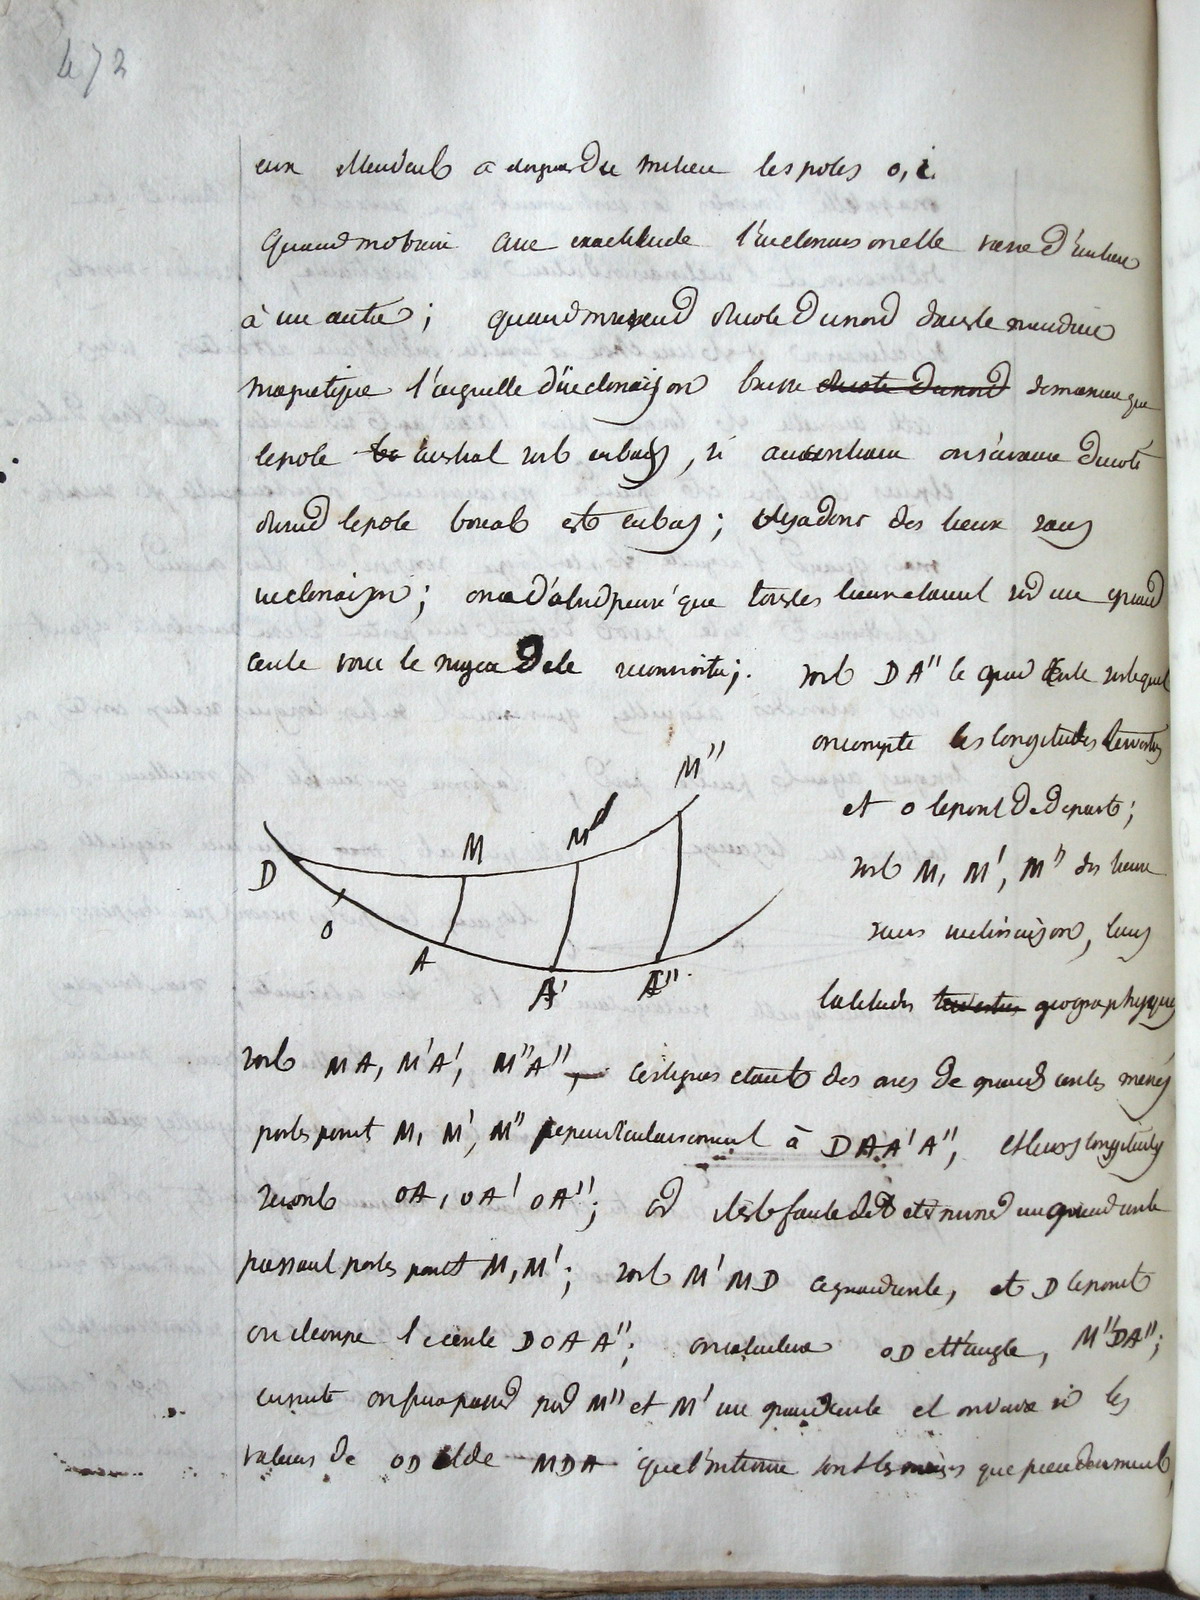 472
les poles o, i.
Quand on obtient avec exactitude l'inclinaison elle varie d'un lieu
à un autre ; quand on se rend du coté du nord dans le meridien
magnetique l'aiguille d'inclinaison baisse du coté du nord de maniere que
le pole austral soit en bas, si au contraire on s'avance du coté
du sud le pole boreal est en bas ; il y a donc des lieux sans
inclinaison ; on a d'abord pensé que tous les lieux etaient sur un grand
cercle voici le moyen de le reconnoitre ; soit DA" le grand cercle sur lequel
on compte les longitudes terrestres
et o le point de depart ;
M"
M
M'
D
soit M, M', M" des lieux
o
sans inclinaison, leurs
A
A'
A"
latitudes terrestres geographiques
sont MA, M'A', M"A", ces lignes etant des arcs de grands cercles menés
par les points M, M', M" perpendiculairement à DAA'A", et leurs longitudes
seront OA, OA' OA"; or il est facile de determiner un grand cercle
passant par les points M, M'; soit M'MD ce grand cercle, et D le point
où il coupe le cercle DOAA"; on calculera OD et l'angle, M"DA";
ensuite on fera passer par M" et M' un grand cercle et on verra si les
valeurs de OD et de MDA que l'on trouve sont les memes que precedemment,